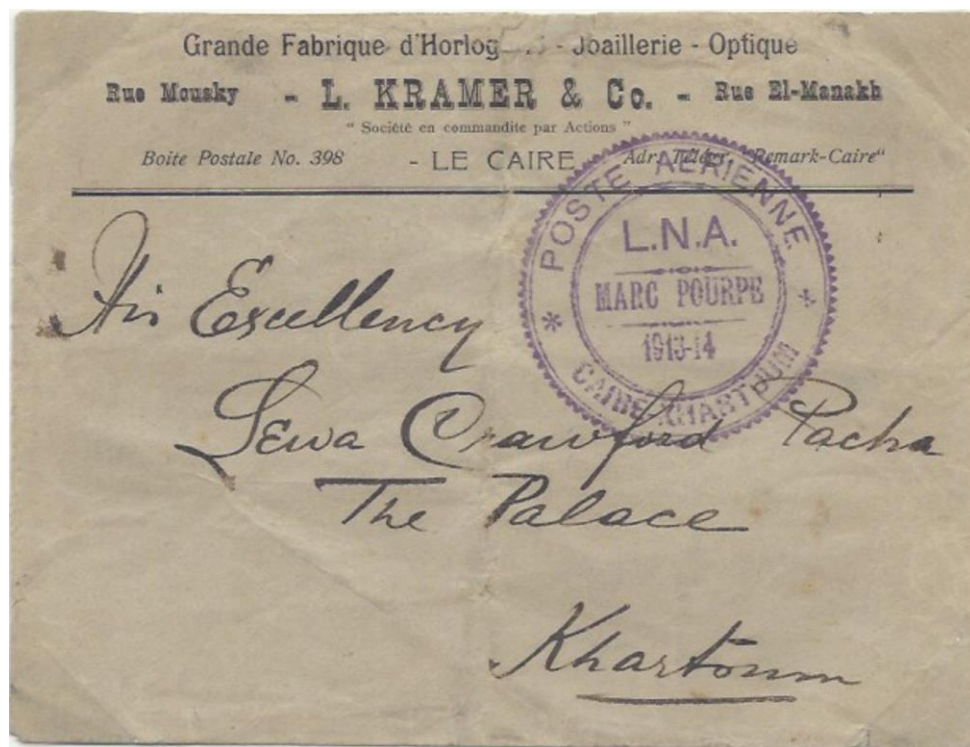 Grande Fabrique d'Horlog - Joaillerie - Optique
Rue Mousky - L. KRAMER & Co. - Rue El-Manakh
" Société en commandite par Actions "
Boite Postale No. 398 - LE CAIRE Adr. Télégr. "Remark-Caire"
* POSTE AERIENNE *
L.N.A.
MARC POURPE
1913-14
CAIRE KHARTOUM
His Excellency
Lewa Crawford Pacha
The Palace
Khartoum